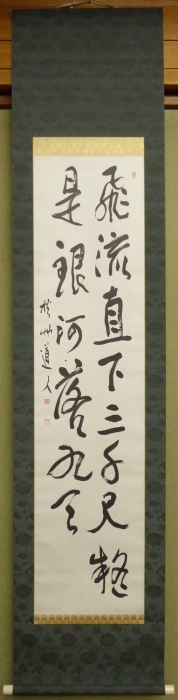 飛流直下三千尺疑
是銀河落九天
道人